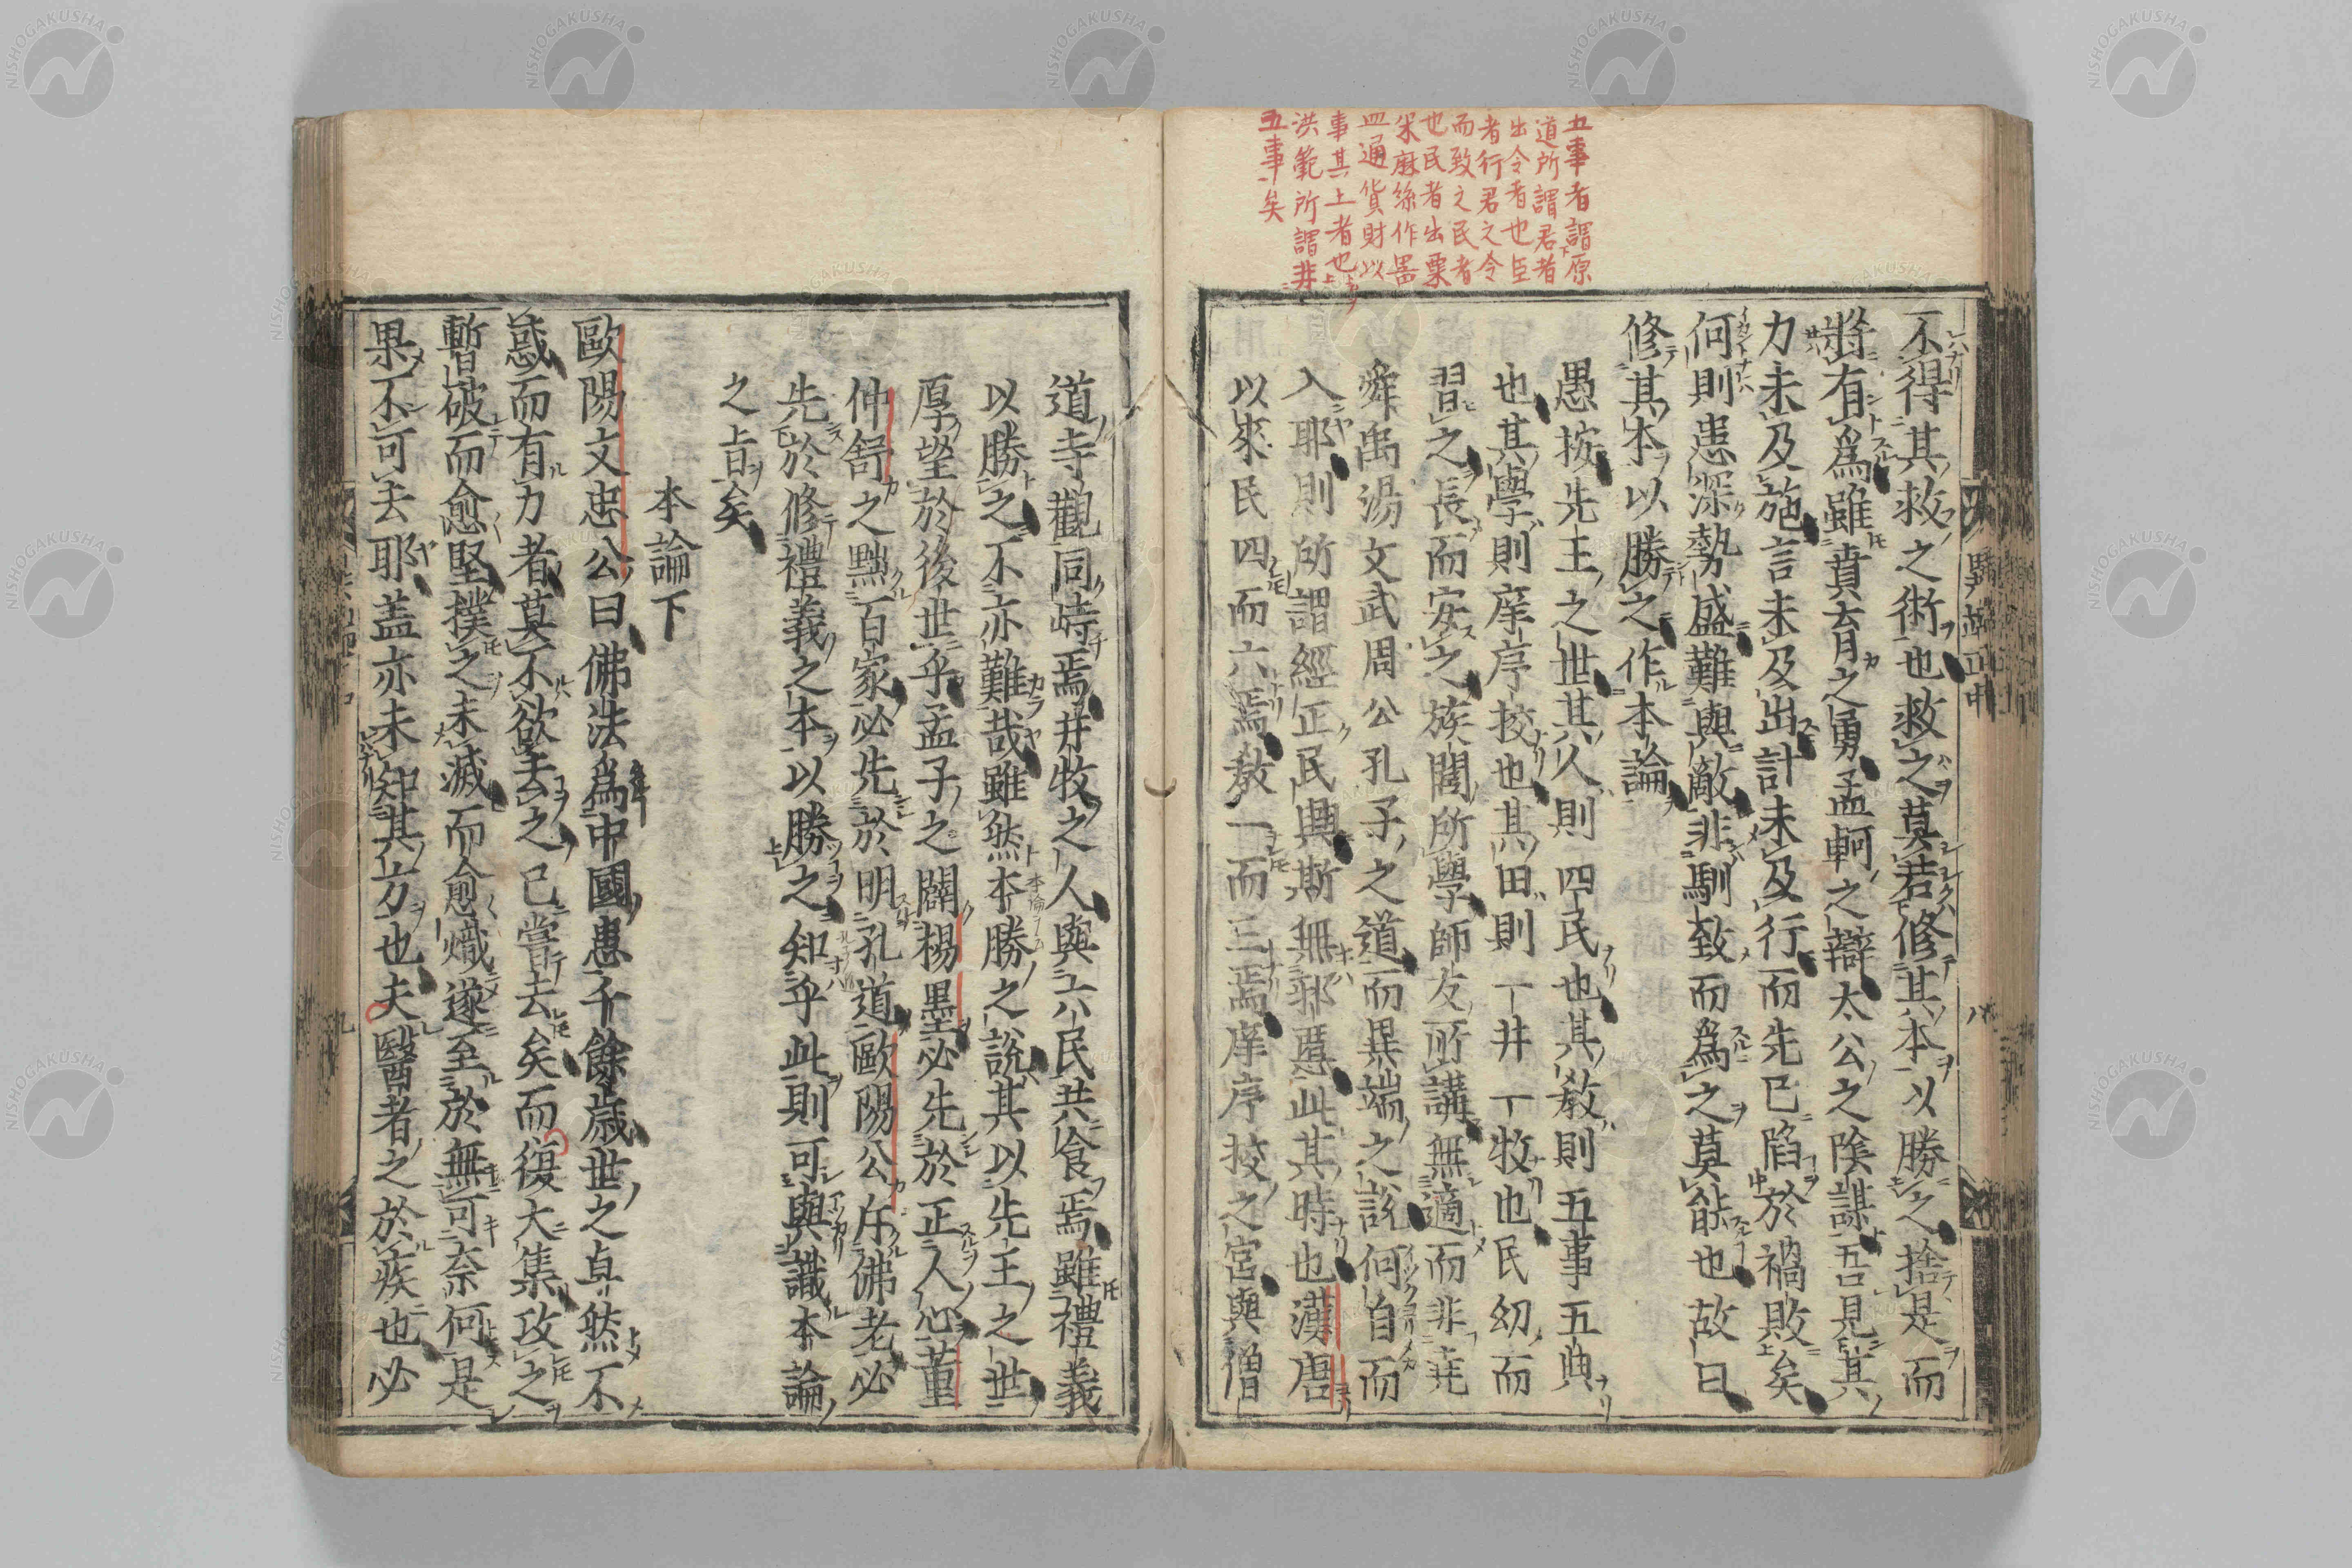 五事者謂原
道所謂君者
出令者也臣
者行君之令
而致之民者
也民者出粟
米麻絲作器
皿通貨財以
事其上者也
洪範所謂非
五事矣
不得其救之術也救之莫若修其本以勝之捨是而
將有爲雖賁育之勇孟軻之辯太公之陰謀吾見其
力未及施言未及出計未及行而先已陷於禍敗矣
何則患深勢盛難與敵非馴致而爲之莫能也故曰
修其本以勝之作本論
愚按先王之世其人則四民也其教則五事五典
也其學則庠序挍也其田則一井一牧也民幼而
習之長而安之族閭所學師友所講無適而非堯
舜禹湯文武周公孔子之道而異端之說何自而
入耶則所謂經正民興斯無邪慝此其時也漢唐
以來民四而六焉教一而三焉庠序挍之宮與僧
道寺觀同峙焉井牧之人與六民共食焉雖禮義
以勝之不亦難哉雖然本勝之說其以先王之世
厚望於後世乎孟子之闢楊墨必先於正人心董
仲舒之黜百家必先於明孔道歐陽公斥佛老必
先於修禮義之本以勝之知乎此則可與識本論
之旨矣
本論下
歐陽文忠公曰佛法爲中國患千餘歲世之卓然不
惑而有力者莫不欲去之已嘗去矣而復大集攻之
暫破而愈堅撲之未滅而愈熾遂至於無可奈何是
果不可去耶蓋亦未知其方也夫醫者之於疾也必
NISHOGAKUSHA